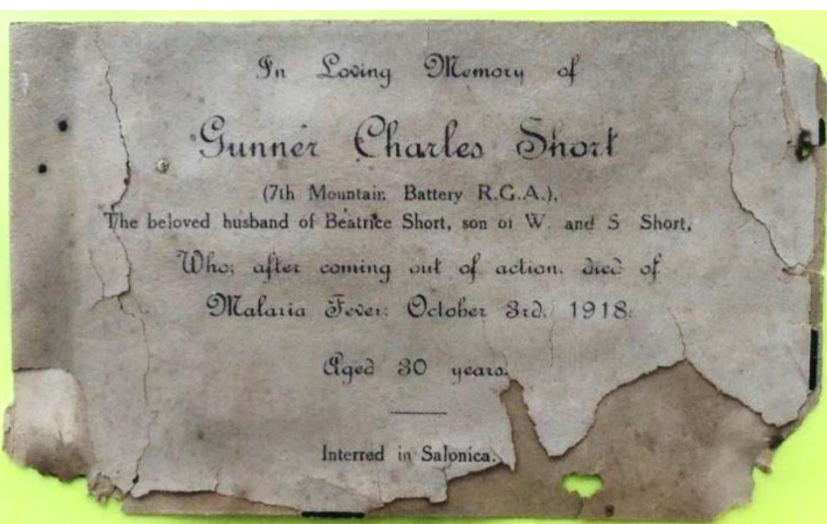 In Loving Memory of
Gunner Charles Short
(7th Mountain Battery R.G.A.),
The beloved husband of Beatrice Short, son of W. and S Short,
Who, after coming out of action, died of
Malaria Fever, October 3rd, 1918,
Aged 30 years.
Interred in Salonica.